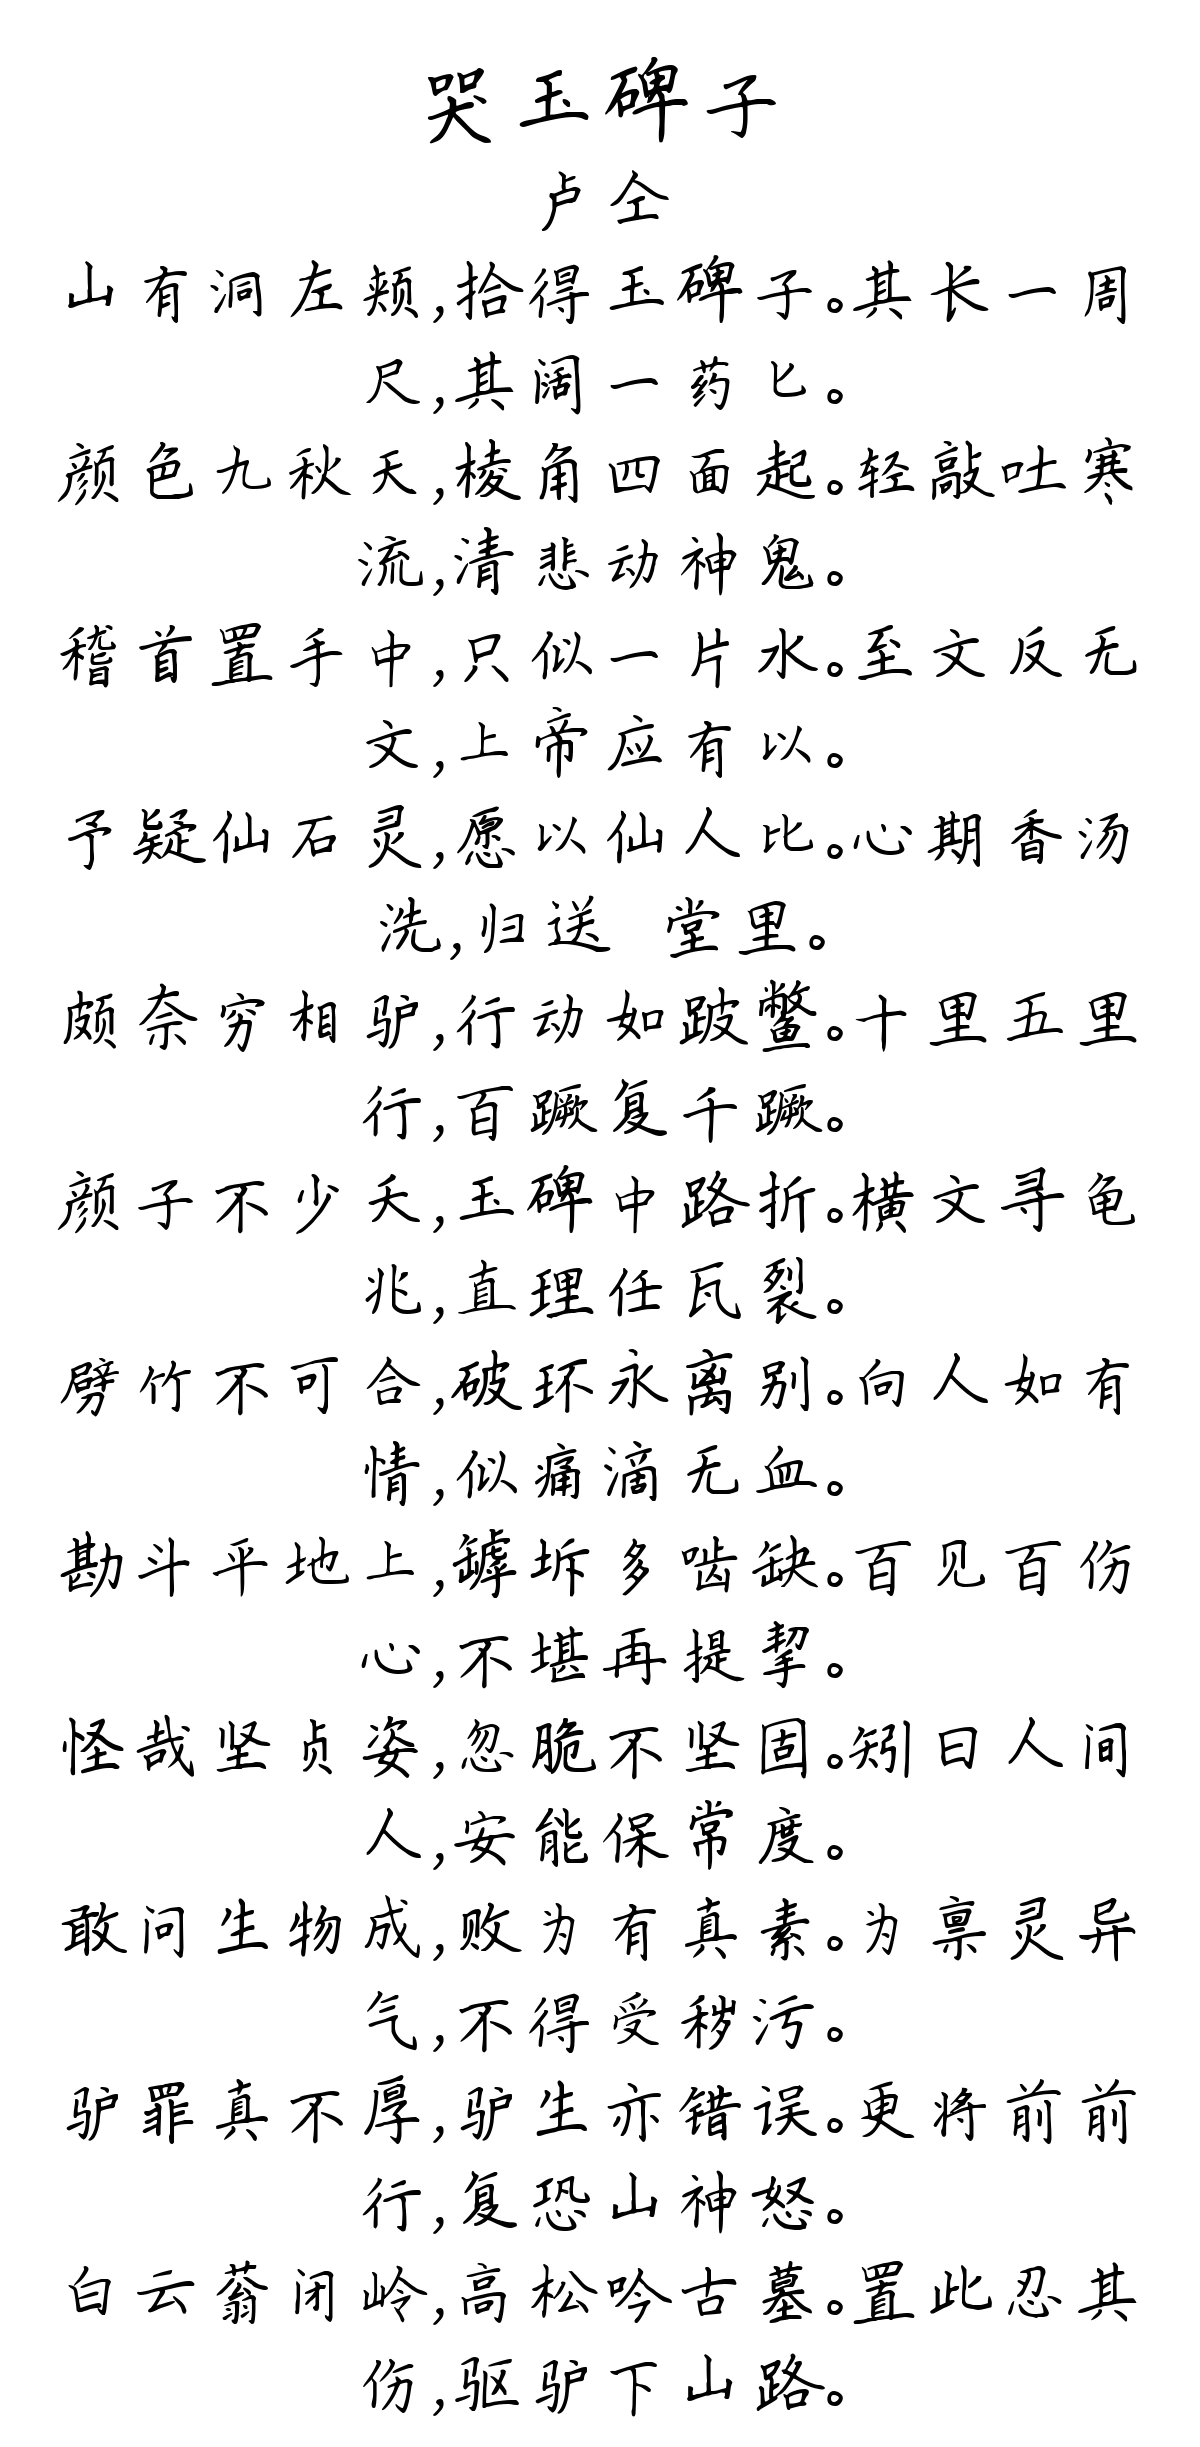 哭玉碑子
卢仝
山有洞左颊,拾得玉碑子。其长一周
尺,其阔一药匕。
颜色九秋天,棱角四面起。轻敲吐寒
流,清悲动神鬼。
稽首置手中,只似一片水。至文反无
文,上帝应有以。
予疑仙石灵,愿以仙人比。心期香汤
洗,归送 堂里。
颇奈穷相驴,行动如跛鳖。十里五里
行,百蹶复千蹶。
颜子不少夭,玉碑中路折。横文寻龟
兆,直理任瓦裂。
劈竹不可合,破环永离别。向人如有
情,似痛滴无血。
勘斗平地上,罅坼多啮缺。百见百伤
心,不堪再提挈。
怪哉坚贞姿,忽脆不坚固。矧曰人间
人,安能保常度。
敢问生物成,败为有真素。为禀灵异
气,不得受秽污。
驴罪真不厚,驴生亦错误。更将前前
行,复恐山神怒。
白云蓊闭岭,高松吟古墓。置此忍其
伤,驱驴下山路。